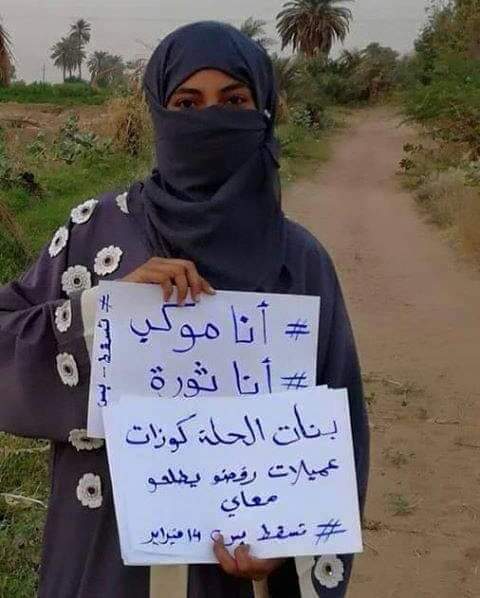 # أنا موكب
# أنا ثورة
# تسقط - بس
بنات الحلة كوزات
عميلات رفضو يطلعو
معاي
# تسقط بس 14 فبراير